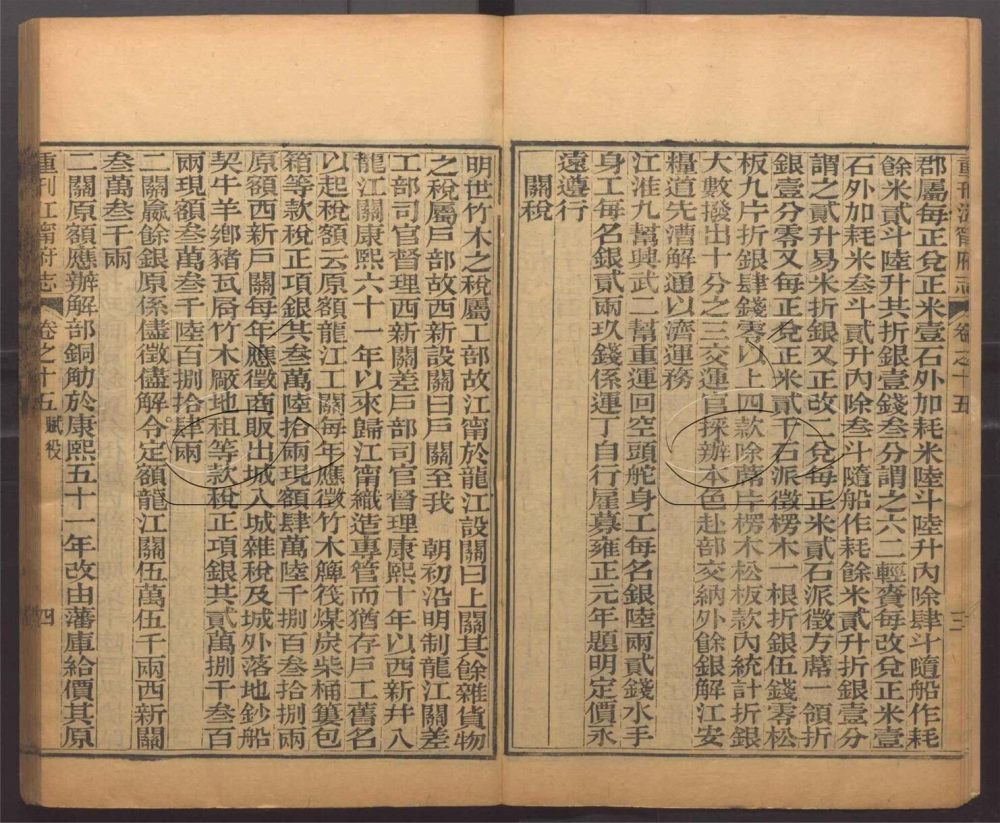 重刊江甯府志 卷之十五 三
郡屬每正兌正米壹石外加耗米陸斗陸升內除肆斗隨船作耗
餘米貳斗陸升共折銀壹錢叁分謂之六二輕賫每改兌正米壹
石外加耗米叁斗貳升內除叁斗隨船作耗餘米貳升折銀壹分
謂之貳升易米折銀又正改二兌每正米貳石派徵方蓆一領折
銀壹分零又每正兌正米貳千石派徵楞木一根折銀伍錢零松
板九片折銀肆錢零以上四款除蓆片楞木松板款內統計折銀
大數撥出十分之三交運官採辦本色赴部交納外餘銀解江安
糧道先漕解通以濟運務
江淮九幫興武二幫重運回空頭舵身工每名銀陸兩貳錢水手
身工每名銀貳兩玖錢係運丁自行雇募雍正元年題明定價永
遠遵行
關稅
明世竹木之稅屬工部故江甯於龍江設關曰上關其餘雜貨物
之稅屬戶部故西新設關曰戶關至我 朝初沿明制龍江關差
工部司官督理西新關差戶部司官督理康熙十年以西新幷入
龍江關康熙六十一年以來歸江甯織造專管而猶存戶工舊名
以起稅額云原額龍江工關每年應徵竹木簰筏煤炭柴桶簍包
箱等款稅正項銀共叁萬陸拾兩現額肆萬陸千捌百叁拾捌兩
原額西新戶關每年應徵商販出城入城雜稅及城外落地鈔船
契牛羊鄉豬瓦屑竹木厰地租等款稅正項銀共貳萬捌千叁百
兩現額叁萬叁千陸百捌拾肆兩
二關贏餘銀原係儘徵儘解今定額龍江關伍萬伍千兩西新關
叁萬叁千兩
二關原額應辦解部銅觔於康熙五十一年改由藩庫給價其原
重刊江甯府志 卷之十五 賦役 四